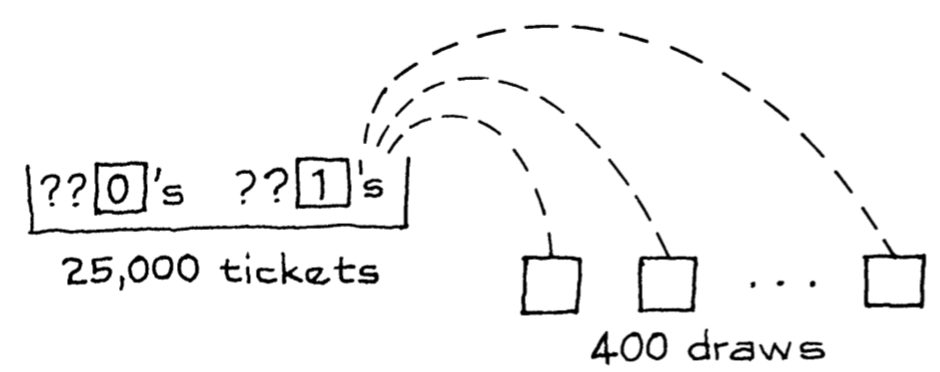 ??0's ??1's
25,000 tickets
...
400 draws